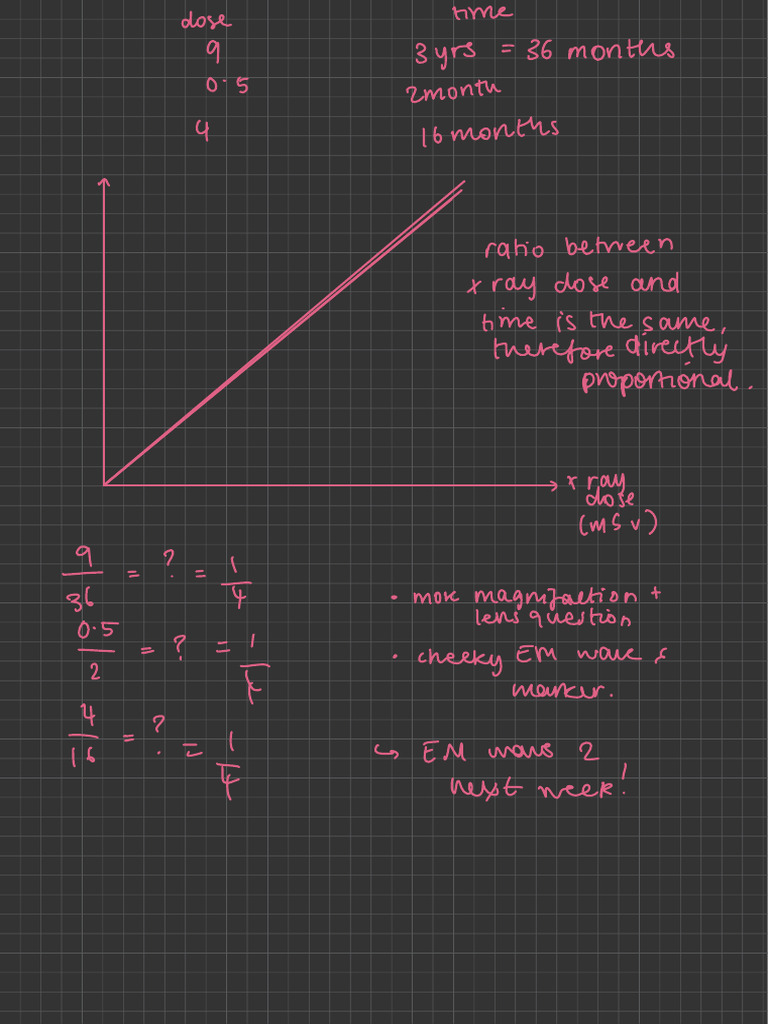 dose
time
9
3 yrs = 36 months
0.5
2 month
4
16 months
ratio between
x ray dose and
time is the same,
therefore directly
proportional.
x ray
dose
(mSv)
9/36 = ? = 1/4
0.5/2 = ? = 1/4
4/16 = ? = 1/4
• more magnifaction +
lens question
• cheeky EM wave &
marker.
↪ EM waves 2
next week!